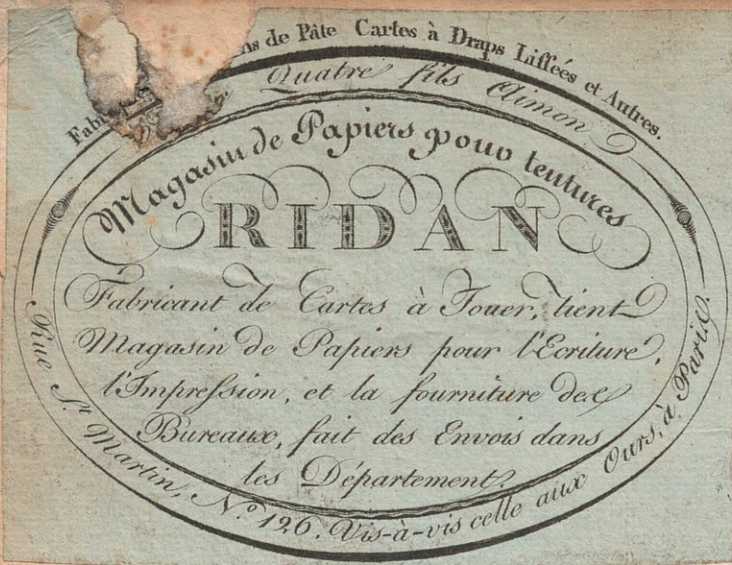 de Pâte Cartes à Draps Lissées et Autres.
Quatre fils Aimon
Magasin de Papiers pour tentures
RIDAN
Fabricant de Cartes à Jouer, tient
Magasin de Papiers pour l'Ecriture,
l'Impression, et la fourniture des
Bureaux, fait des Envois dans
les Département.
Rue St. Martin, No. 126. Vis-à-vis celle aux Ours, à Paris.